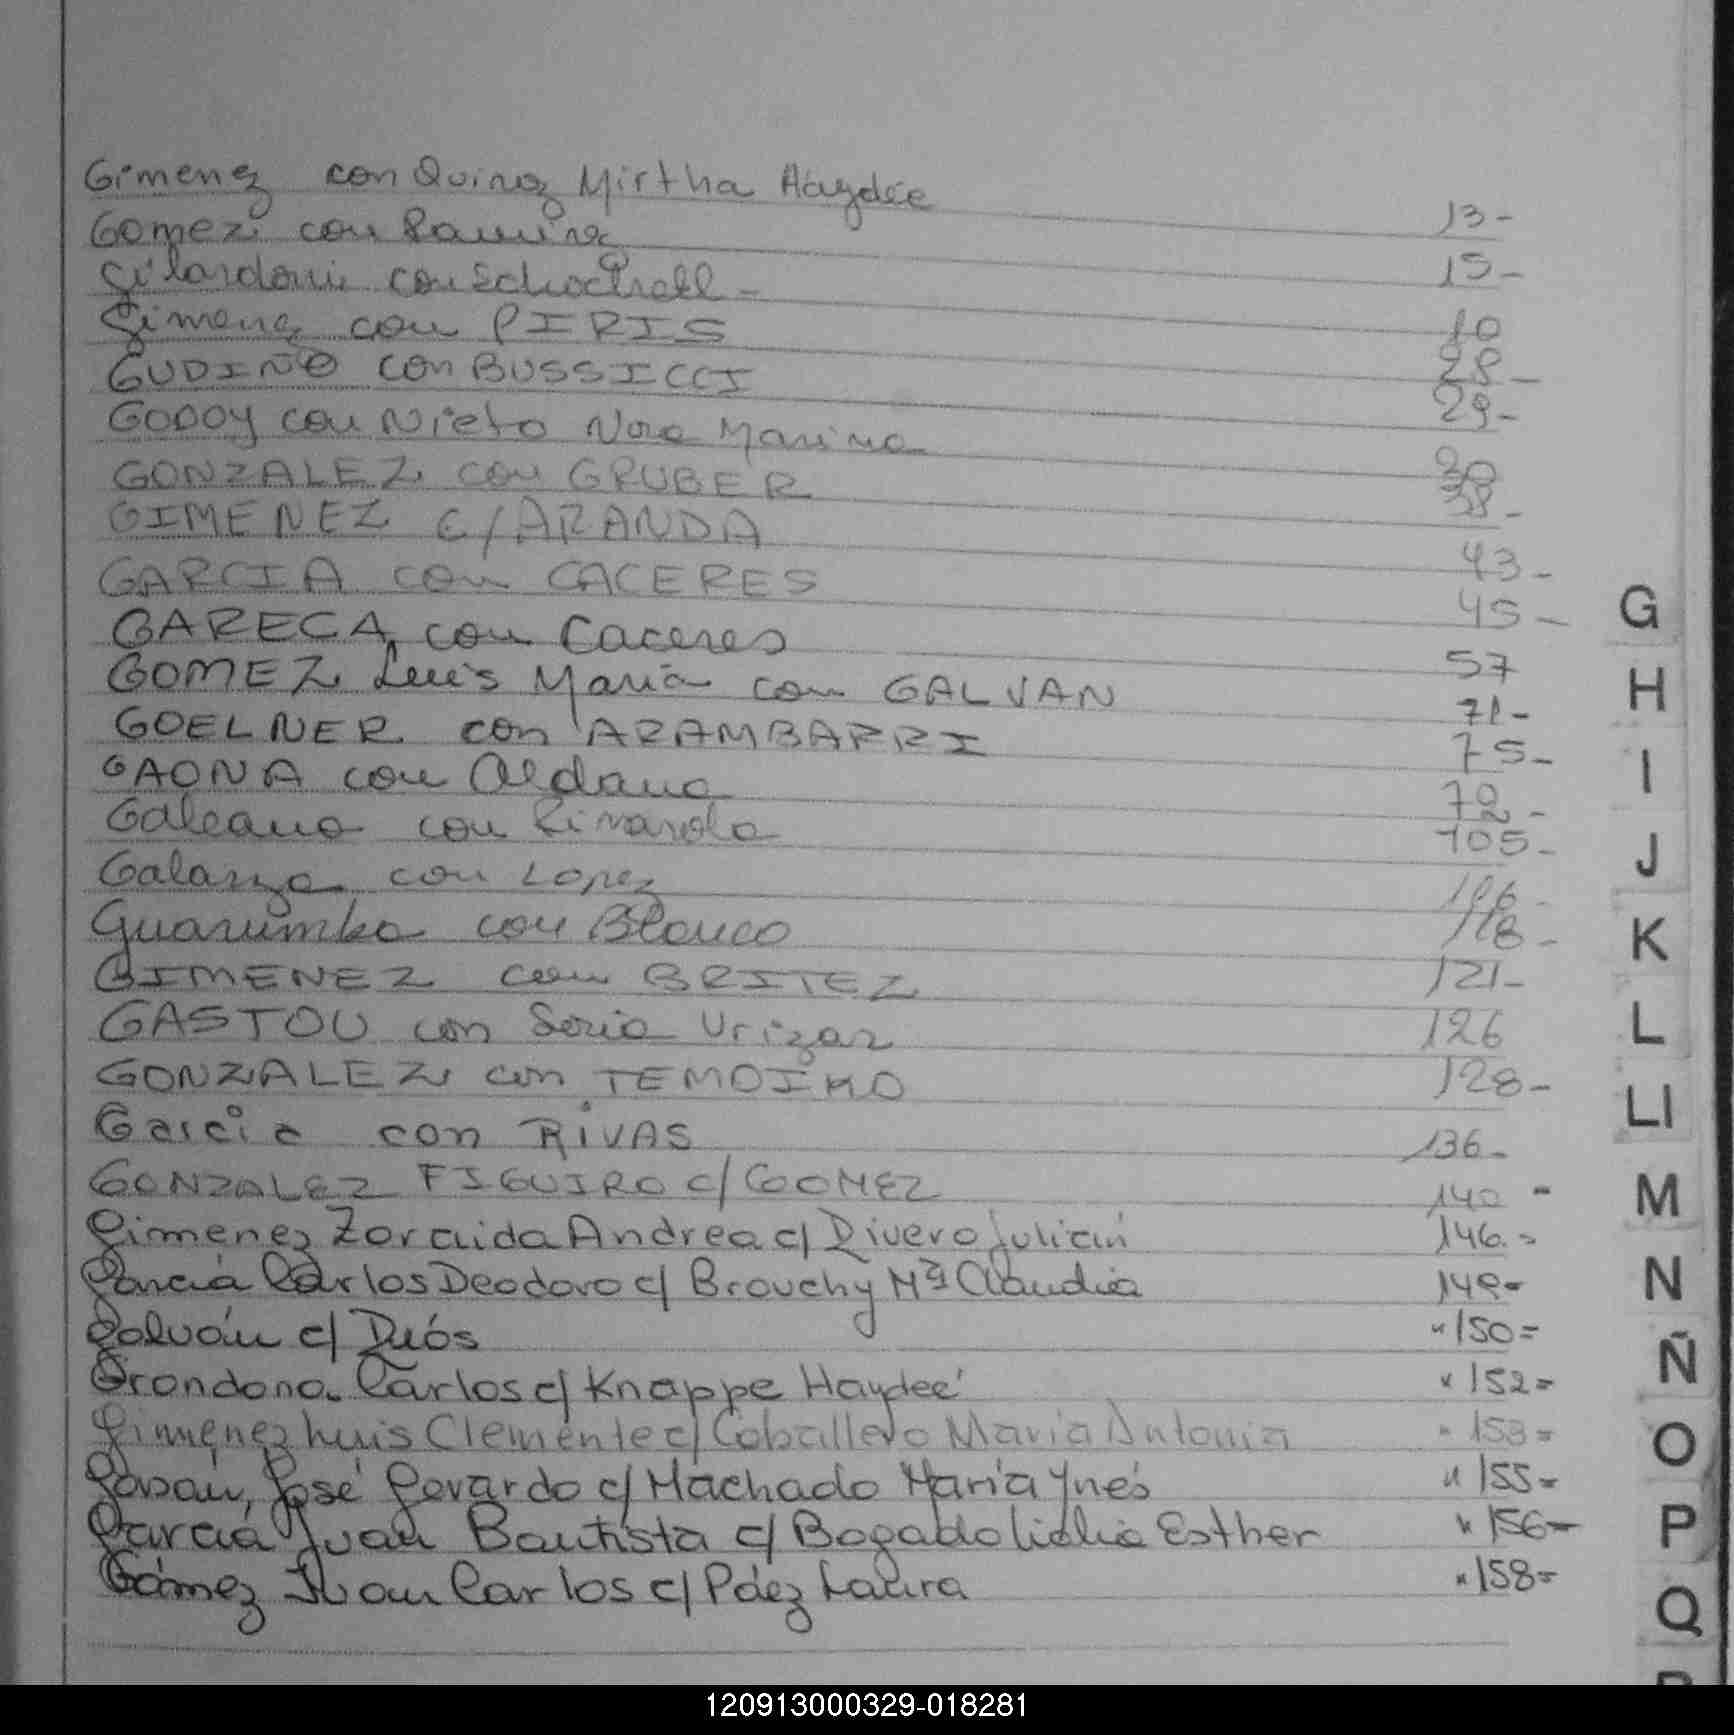 Gimenez con Quiroz Mirtha Haydée 13-
Gomez con Ramirez 15-
Gilardoni con 10
Gimenez con PIRIS 28-
GUDIÑO con BUSSICCI 29-
GODOY con Nieto Nora Marina 30
GONZALEZ con GRUBER 38-
GIMENEZ c/ARANDA 43-
GARCIA con CACERES 45-
GARECA con Caceres 57
GOMEZ Luis Maria con GALVAN 71-
GOELNER con ARAMBARRI 75-
GAONA con Aldana
Galeano con 105-
Galarza con Lopez
Guarumba con Blanco 118-
GIMENEZ con BRITEZ 121-
GASTOU con Soria Urizar 126
GONZALEZ con 128-
Garcia con RIVAS 136-
GONZALEZ FIGUIRO c/GOMEZ 140 -
Gimenez Zoraida Andrea c/ Rivero Julián 146-
García Carlos Deodoro c/ Brouchy Mª Claudia 149-
Galván c/ "150=
Grondona Carlos c/ Knappe Haydeé "152=
Gimenez Luis Clemente c/ Caballero María Antonia "153=
José Gerardo c/ Machado María Ynés "155=
García Juan Bautista c/ Bogado Lidia Esther "156-
Gómez Juan Carlos c/ Páez Laura "158=
G
H
I
J
K
L
Ll
M
N
Ñ
O
P
Q
120913000329-018281